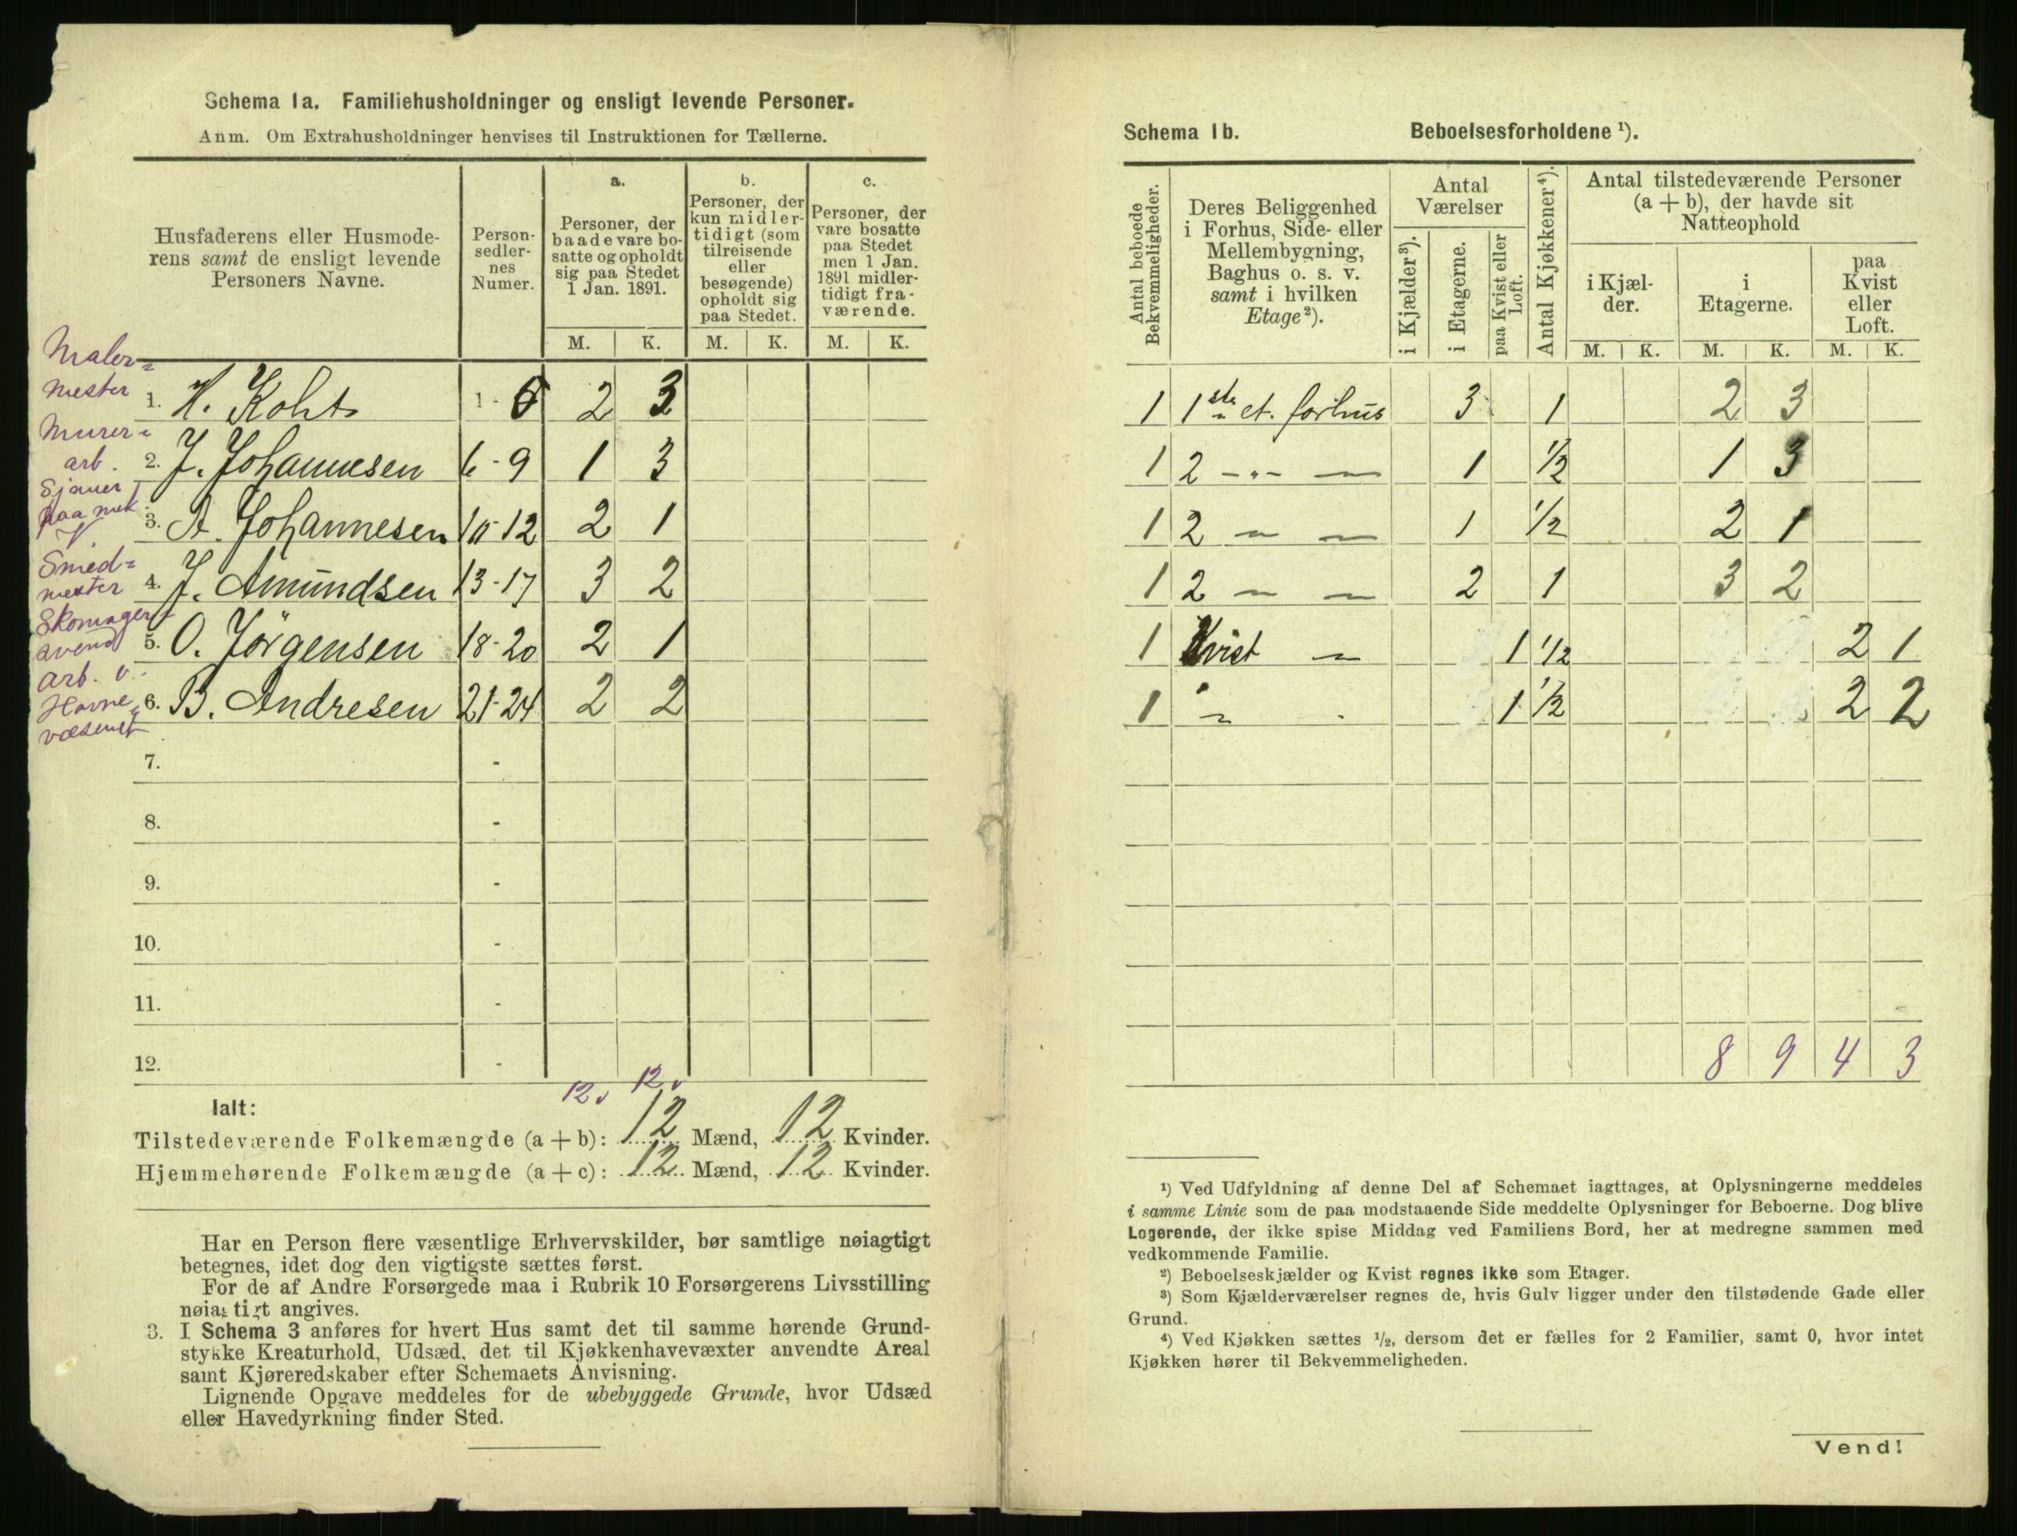 Schema 1a. Familiehusholdninger og ensligt levende Personer.
Anm. Om Extrahusholdninger henvises til Instruktionen for Tællerne.
Husfaderens eller Husmode-
rens samt de ensligt levende
Personers Navne.
Person-
sedler-
nes
Numer.
a.
Personer, der
baade vare bo-
satte og opholdt
sig paa Stedet
1 Jan. 1891.
b.
Personer, der
kun midler-
tidigt (som
tilreisende
eller
besøgende)
opholdt sig
paa Stedet.
c.
Personer, der
vare bosatte
paa Stedet
men 1 Jan.
1891 midler-
tidigt fra-
værende.
M. K. M. K. M. K.
Maler-
mester
1. H. Koht 1 - 2 3
Murer-
arb.
2. J. Johannesen 6 - 9 1 3
Sjauer
paa mek.
V.
3. A. Johannesen 10-12 2 1
Smed-
mester
4. J. Amundsen 13-17 3 2
Skomager
svend
5. O. Jörgensen 18-20 2 1
Arb. v.
Havne
væsenet
6. B. Andresen 21-24 2 2
7. -
8. -
9. -
10. -
11. -
12. -
12 12
Ialt:
Tilstedeværende Folkemængde (a + b): 12 Mænd, 12 Kvinder.
Hjemmehørende Folkemængde (a + c): 12 Mænd, 12 Kvinder.
Har en Person flere væsentlige Erhvervskilder, bør samtlige nøiagtigt
betegnes, idet dog den vigtigste sættes først.
For de af Andre Forsørgede maa i Rubrik 10 Forsørgerens Livsstilling
nøiagtigt angives.
3. I Schema 3 anføres for hvert Hus samt det til samme hørende Grund-
stykke Kreaturhold, Udsæd, det til Kjøkkenhavevæxter anvendte Areal
samt Kjøreredskaber efter Schemaets Anvisning.
Lignende Opgave meddeles for de ubebyggede Grunde, hvor Udsæd
eller Havedyrkning finder Sted.
Schema 1b. Beboelsesforholdene ¹).
Antal beboede
Bekvemmeligheder.
Deres Beliggenhed
i Forhus, Side- eller
Mellembygning,
Baghus o. s. v.
samt i hvilken
Etage ²).
Antal
Værelser
i Kjælder ³).
i Etagerne.
paa Kvist eller
Loft.
Antal Kjøkkener ⁴).
Antal tilstedeværende Personer
(a + b), der havde sit
Natteophold
i Kjæl-
der.
i
Etagerne.
paa
Kvist
eller
Loft.
M. K. M. K. M. K.
1 1ste et. forhus 3 1 2 3
1 2 - " - — 1 1/2 1 3
1 2 — — 1 1/2 2 1
1 2 — — 2 1 3 2
1 Kvist — 1 1/2 2 1
1 " 1 1/2 2 2
8 9 4 3
¹) Ved Udfyldning af denne Del af Schemaet iagttages, at Oplysningerne meddeles
i samme Linie som de paa modstaaende Side meddelte Oplysninger for Beboerne. Dog blive
Logerende, der ikke spise Middag ved Familiens Bord, her at medregne sammen med
vedkommende Familie.
²) Beboelseskjælder og Kvist regnes ikke som Etager.
³) Som Kjælderværelser regnes de, hvis Gulv ligger under den tilstødende Gade eller
Grund.
⁴) Ved Kjøkken sættes ½, dersom det er fælles for 2 Familier, samt 0, hvor intet
Kjøkken hører til Bekvemmeligheden.
Vend!